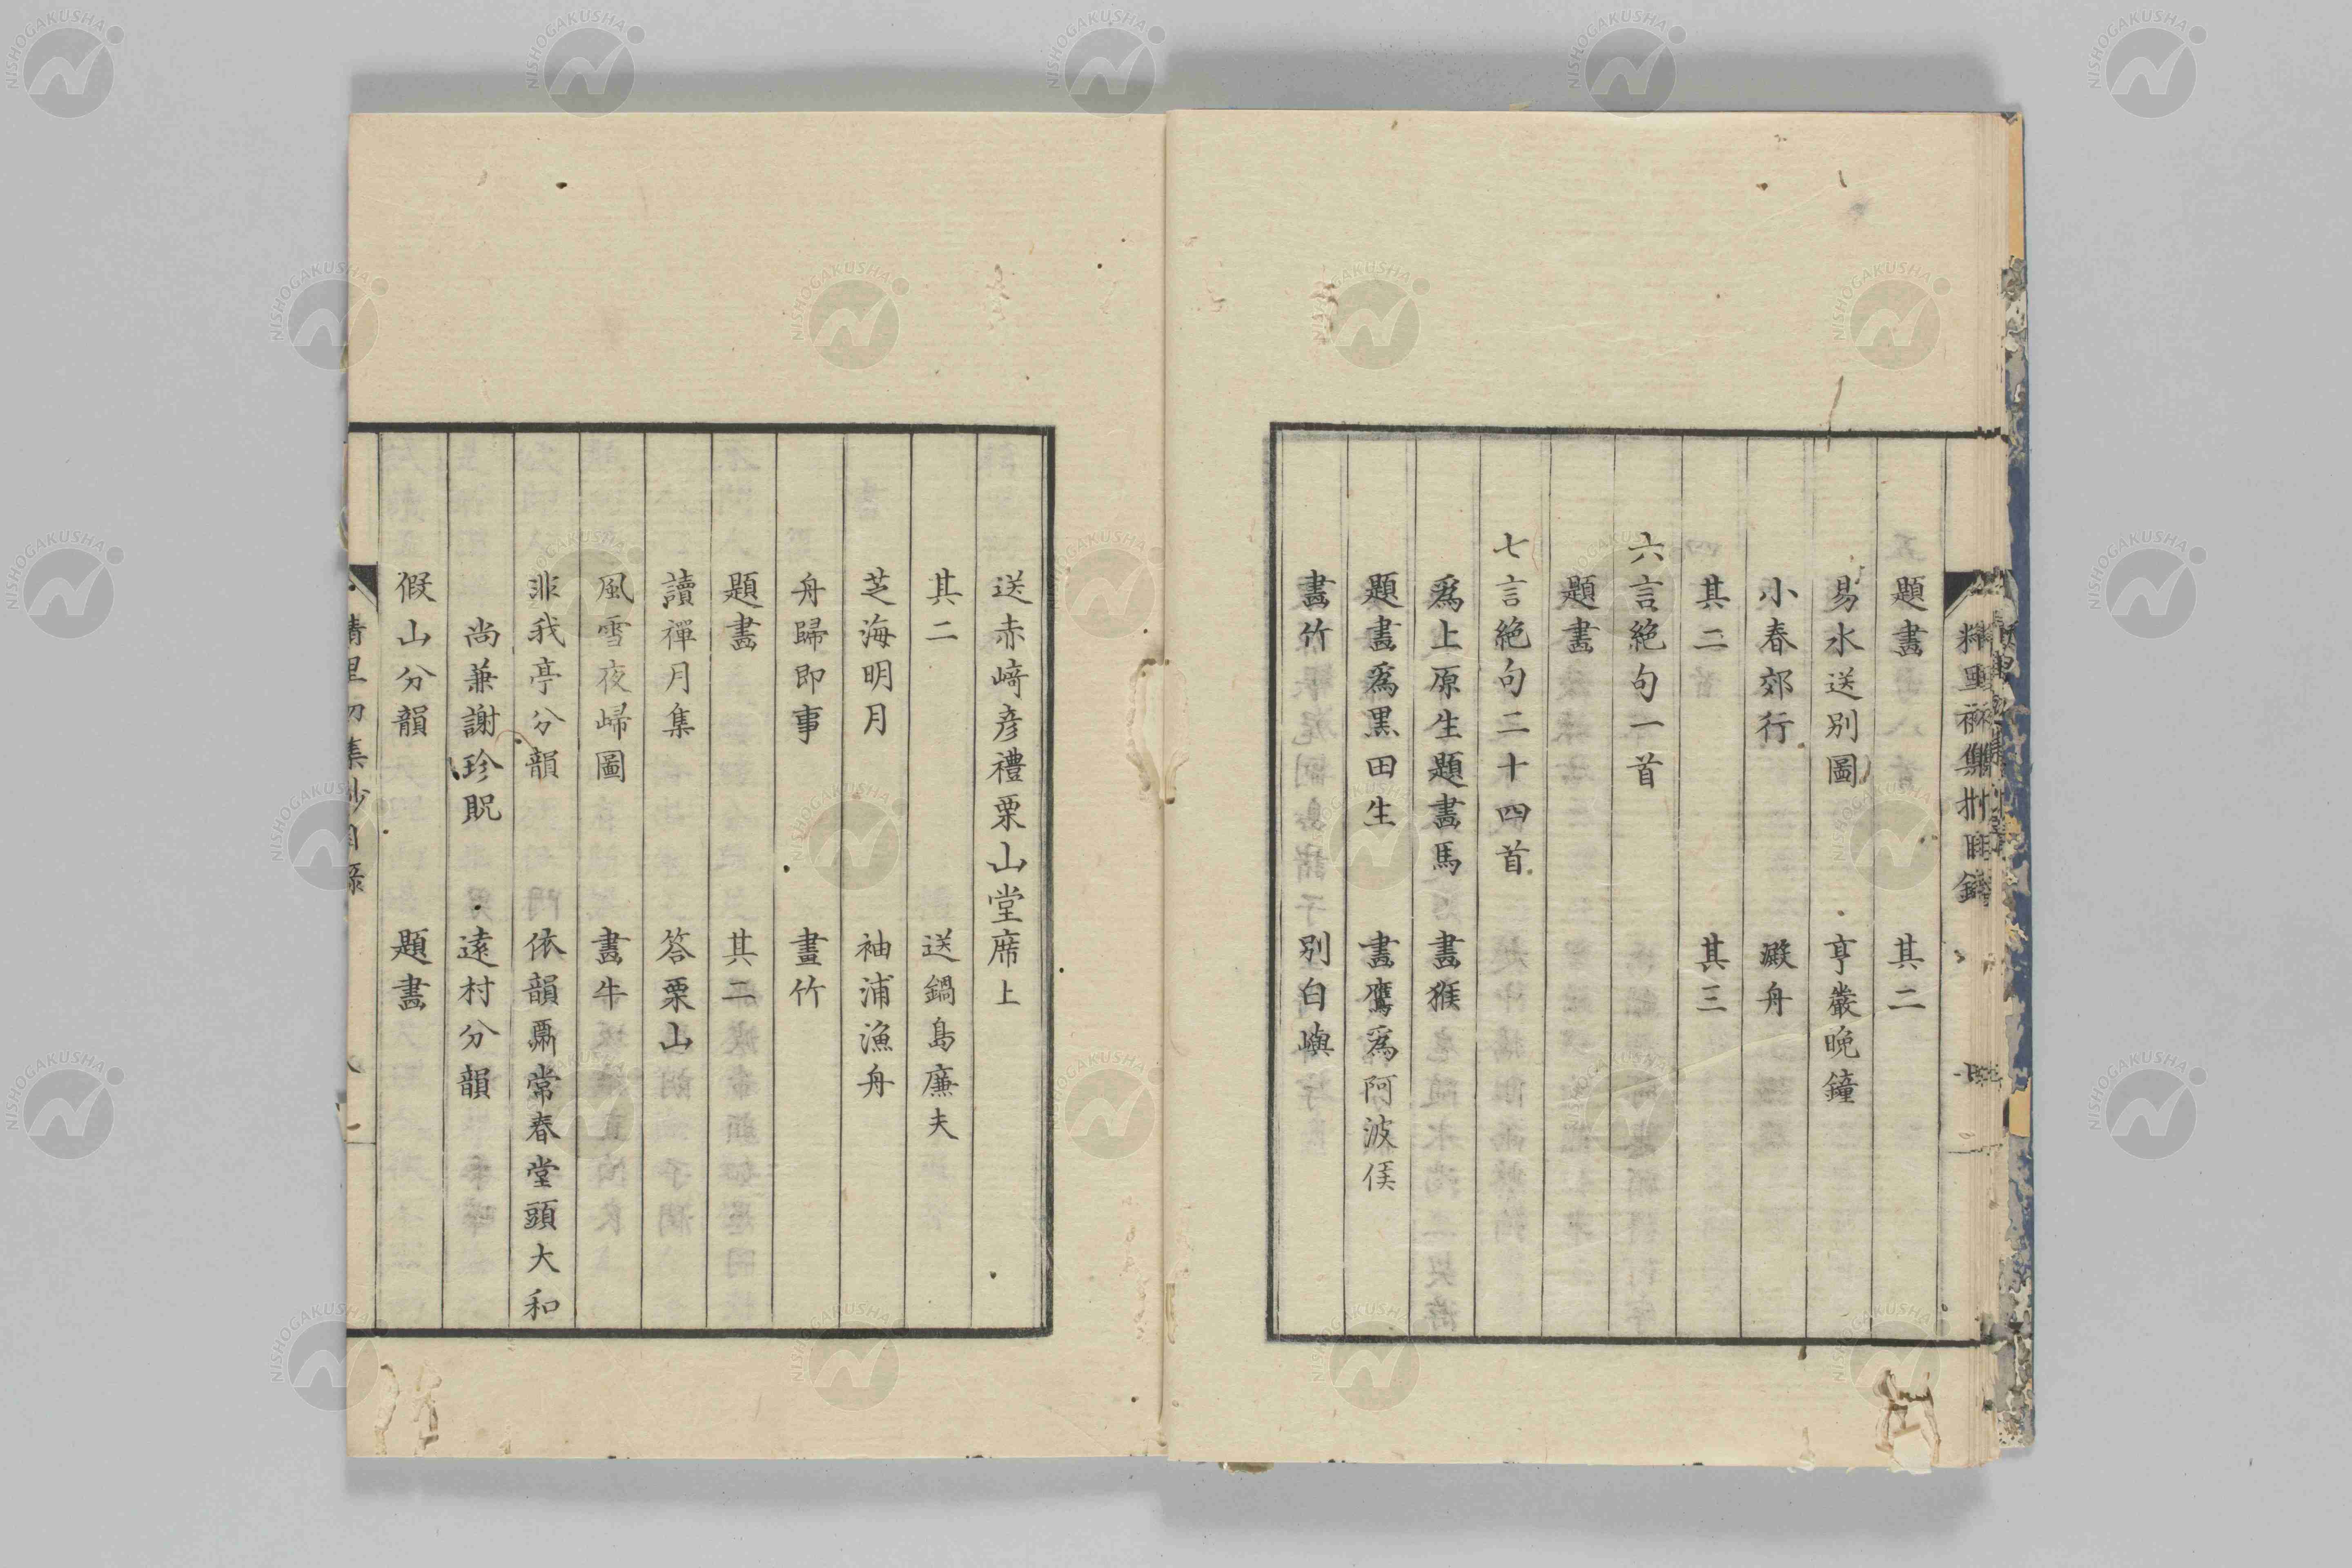 題畫　其二
易水送別圖　亨巖晚鐘
小春郊行　澱舟
其二　其三
六言絶句一首
題畫
七言絶句二十四首
爲上原生題畫馬　畫猴
題畫爲黒田生　畫鷹爲阿波侯
畫竹　別白嶼
送赤﨑彦禮栗山堂席上
其二　送鍋島廉夫
芝海明月　袖浦漁舟
舟歸即事　畫竹
題畫　其二
讀禪月集　答栗山
風雪夜歸圖　畫牛
非我亭分韻　依韻鼎常春堂頭大和
尚兼謝珍貺　遠村分韻
假山分韻　題畫
NISHOGAKUSHA